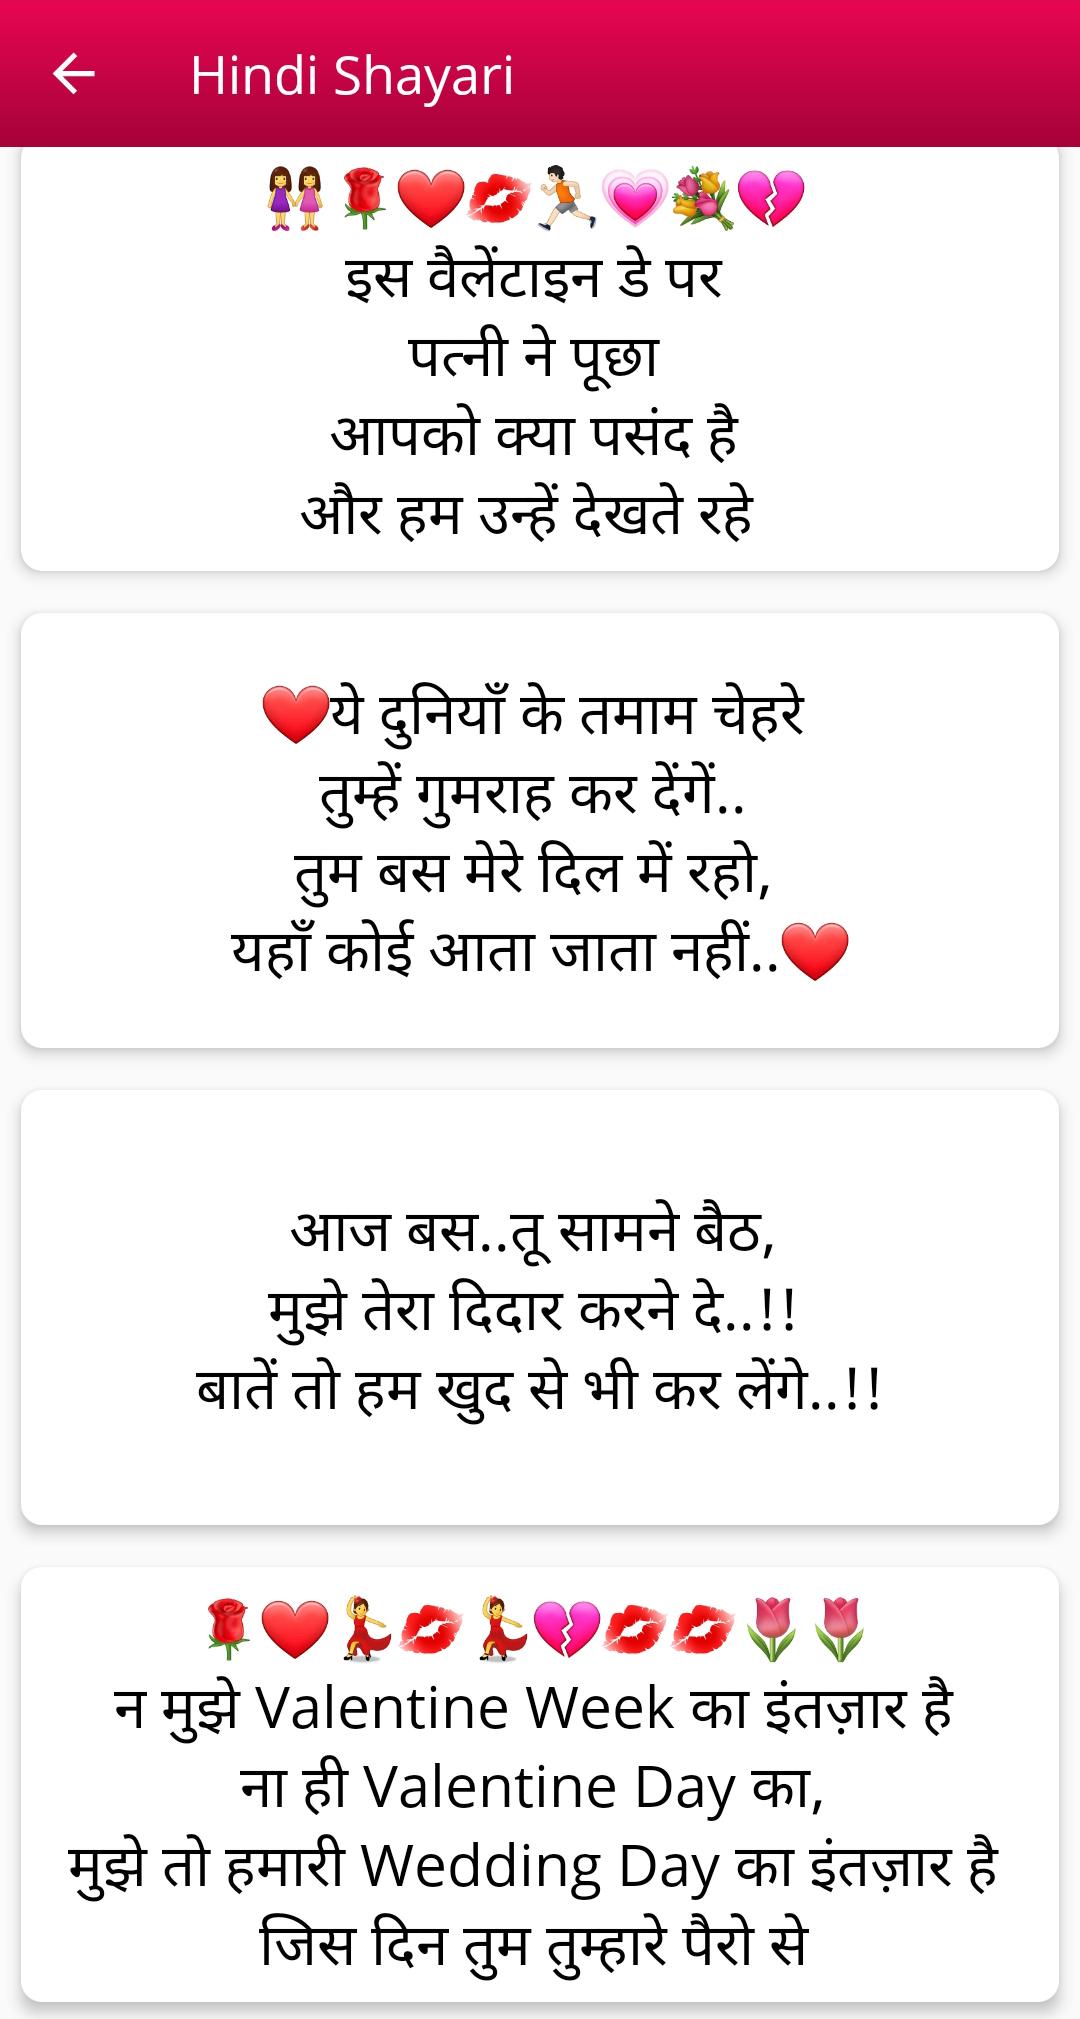 Hindi Shayari
👭🌹❤️💋🏃🏻💗💐💔
इस वैलेंटाइन डे पर
पत्नी ने पूछा
आपको क्या पसंद है
और हम उन्हें देखते रहे
❤️ये दुनियाँ के तमाम चेहरे
तुम्हें गुमराह कर देंगें..
तुम बस मेरे दिल में रहो,
यहाँ कोई आता जाता नहीं..❤️
आज बस..तू सामने बैठ,
मुझे तेरा दिदार करने दे..!!
बातें तो हम खुद से भी कर लेंगे..!!
🌹❤️💃💋💃💔💋💋🌷🌷
न मुझे Valentine Week का इंतज़ार है
ना ही Valentine Day का,
मुझे तो हमारी Wedding Day का इंतज़ार है
जिस दिन तुम तुम्हारे पैरो से